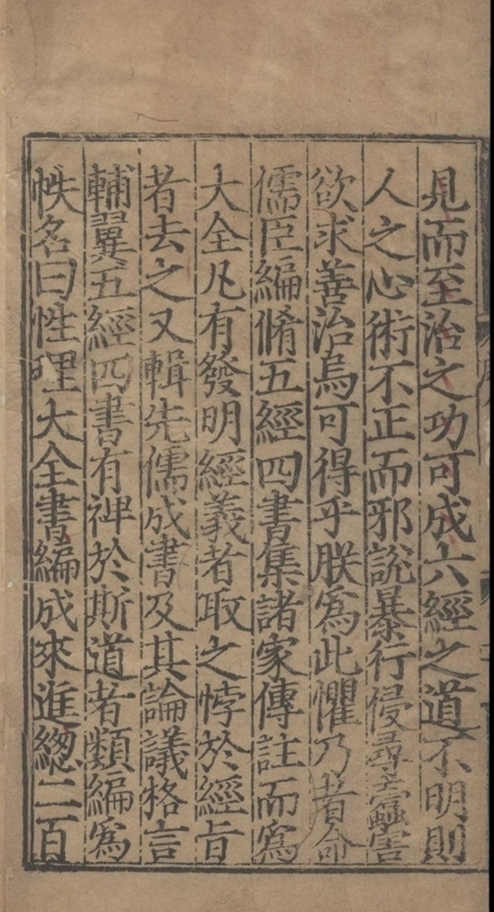 見而至治之功可成六經之道不明則
人之心術不正而邪說暴行侵尋蠹害
欲求善治烏可得乎朕爲此懼乃者命
儒臣編脩五經四書集諸家傳註而爲
大全凡有發明經義者取之悖於經旨
者去之又輯先儒成書及其論議格言
輔翼五經四書有裨於斯道者類編爲
帙名曰性理大全書編成來進緫二百